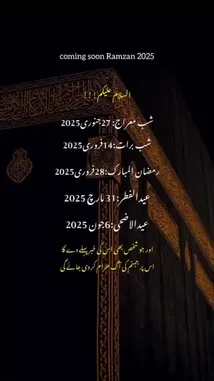 coming soon Ramzan 2025
السلام علیکم!!!
شب معراج:27جنوری2025
شب برات:14فروری2025
رمضان المبارک:28فروری2025
عیدالفطر:31مارچ 2025
عیدالاضحی:6جون 2025
اور جو شخص بھی اس کی خبر پہلے دے گا
اس پر جہنم کی آگ حرام کر دی جائے گی